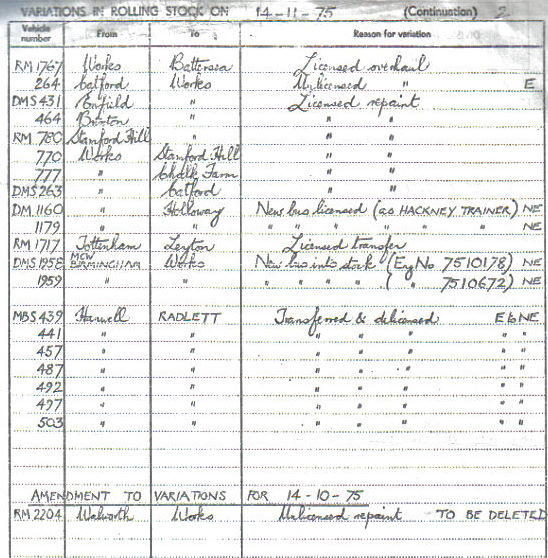 VARIATIONS IN ROLLING STOCK ON 14-11-75 (Continuation) 2
Vehicle number From To Reason for variation
RM 1767 Works Battersea Licensed overhaul
264 Catford Works Unlicensed " E
DMS 431 Enfield " Licensed repaint
464 Brixton " " "
RM 780 Stamford Hill " " "
770 Works Stamford Hill " "
777 " Chalk Farm " "
DMS 263 " Catford " "
DM 1160 " Holloway New bus licensed (as HACKNEY TRAINER) NE
1179 " " " " " " " " NE
RM 1717 Tottenham Leyton Licensed transfer
DMS 1958 MCW BIRMINGHAM Works New bus into stock (Eng No 7510178) NE
1959 " " " " " " ( " 7510672) NE
MBS 439 Hanwell RADLETT Transferred & delicensed E to NE
441 " " " " " " "
457 " " " " " " "
487 " " " " " " "
492 " " " " " " "
497 " " " " " " "
503 " " " " " " "
AMENDMENT TO VARIATIONS FOR 14-10-75
RM 2204 Walworth Works Unlicensed repaint TO BE DELETED